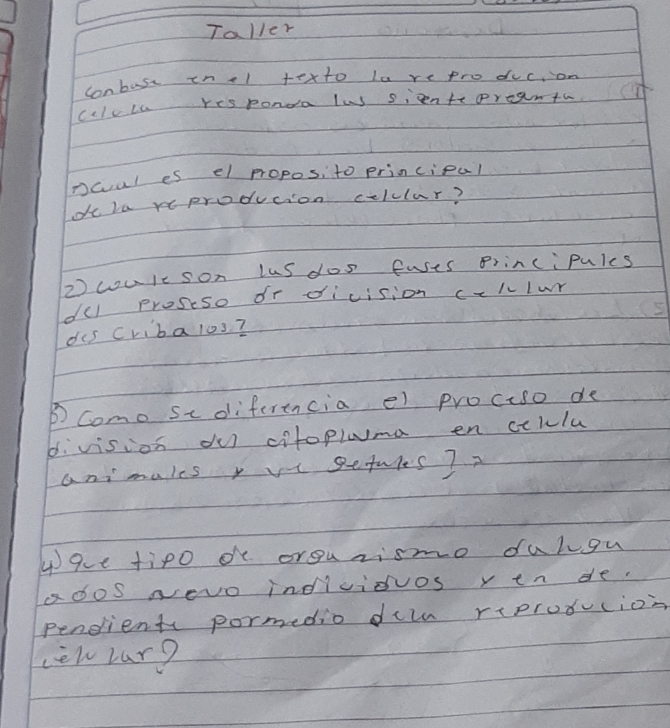 Taller
con base en el texto la reproducion
celula responda las siente pregunta
1) cual es el proposito principal
de la reproducion celular?
2) cuale son las dos fases principales
del proseso de division celular
describalos?
3) Como se diferencia el proceso de
división del citoplasma en celula
animales y vegetales?
4) que tipo de organismo da lugu
a dos nuevo individuos y en de.
pendiente pormedio dela reproducion
celular?